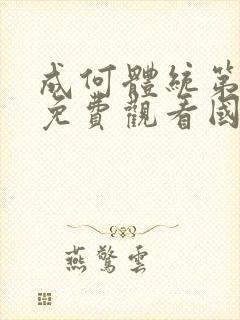 成何體統第
免費觀看國
燕驚雲